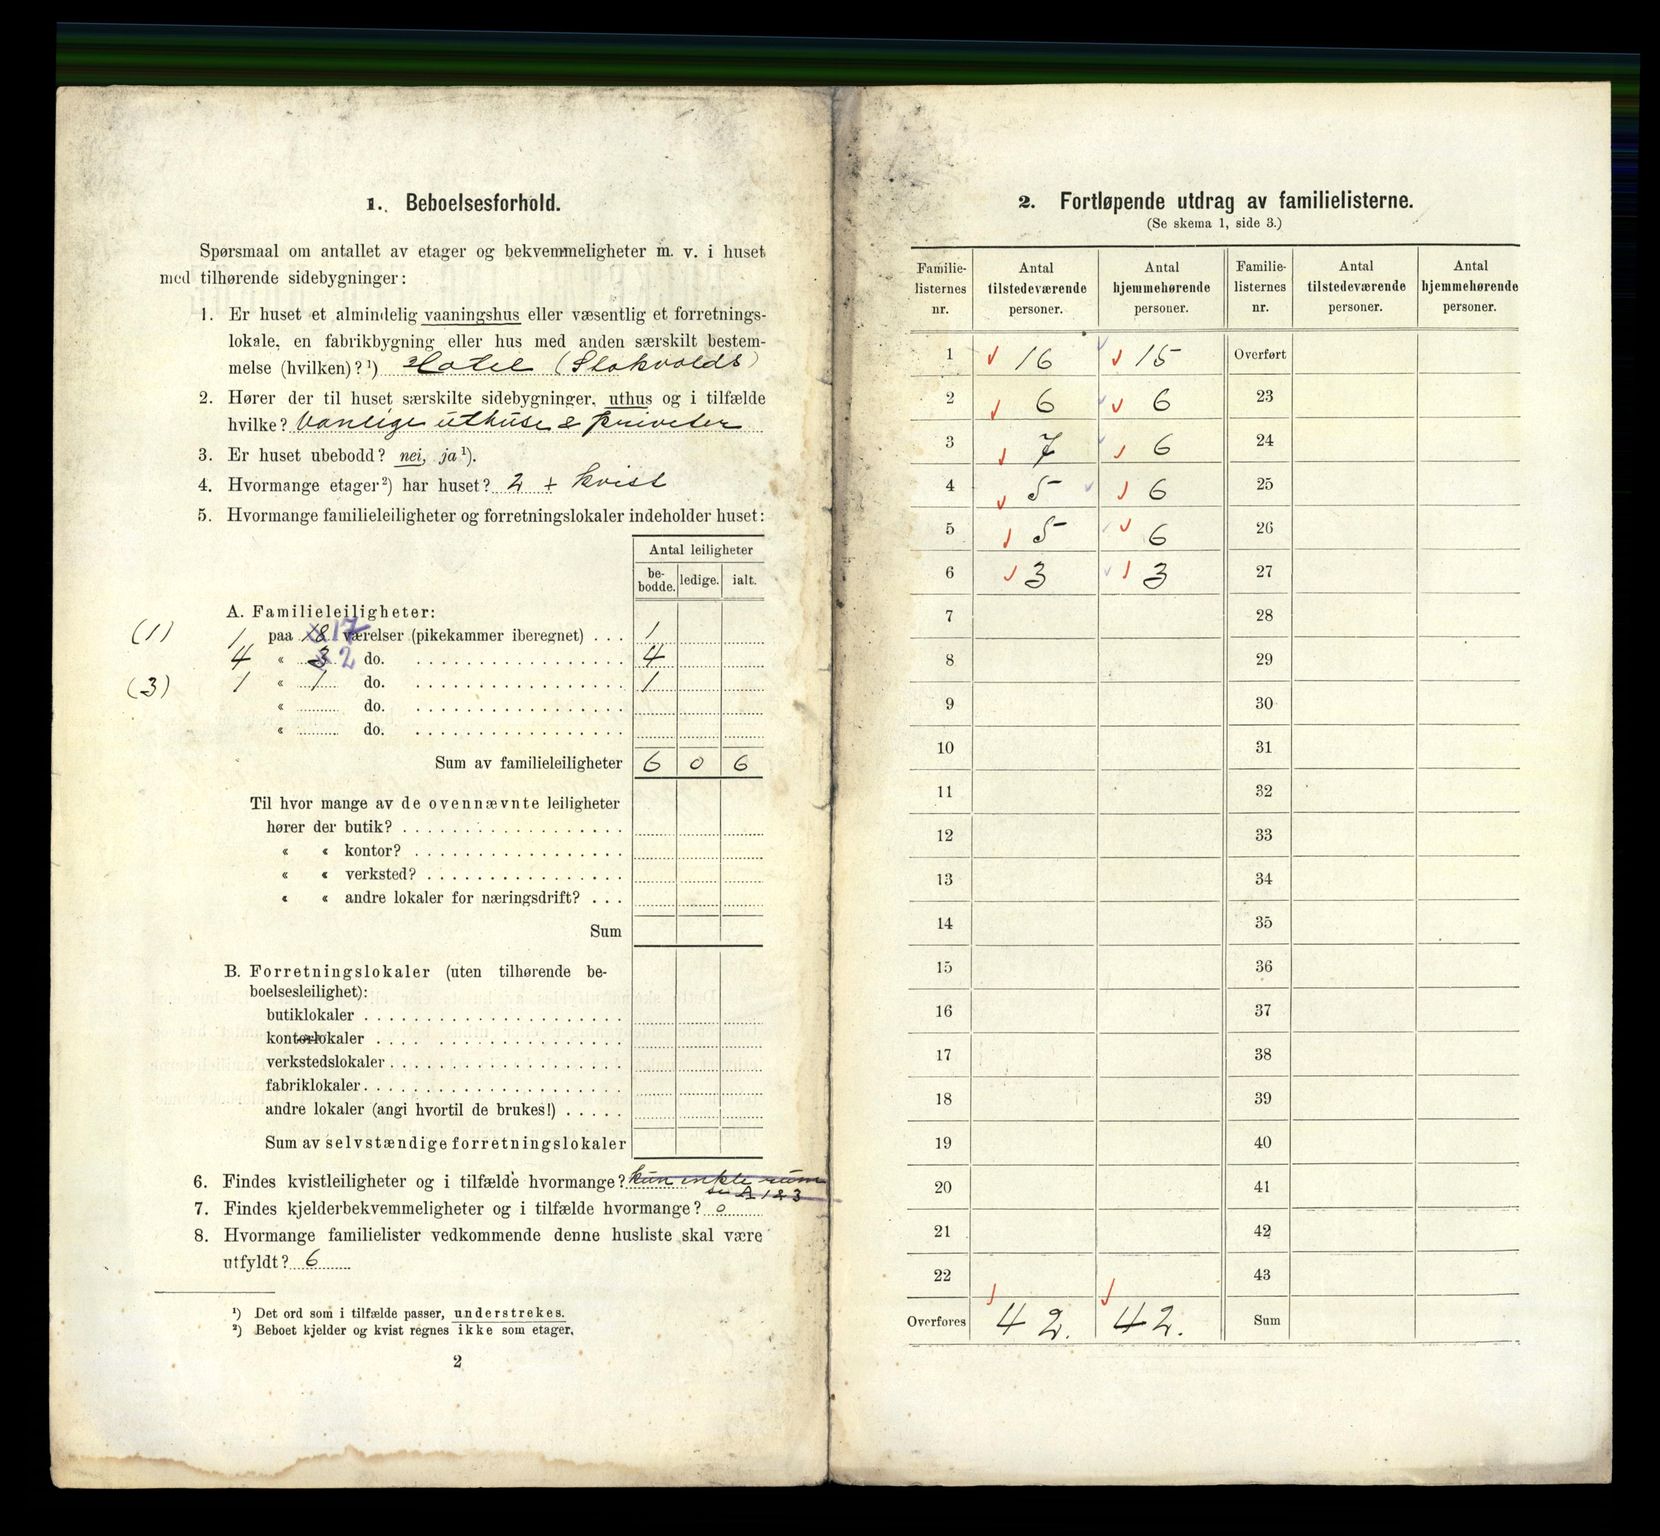 1. Beboelsesforhold.
Spørsmaal om antallet av etager og bekvemmeligheter m. v. i huset
med tilhørende sidebygninger:
1. Er huset et almindelig vaaningshus eller væsentlig et forretnings-
lokale, en fabrikbygning eller hus med anden særskilt bestem-
melse (hvilken)?¹) Hotel (Stokvolds)
2. Hører der til huset særskilte sidebygninger, uthus og i tilfælde
hvilke? Vanlige uthuse & priveter
3. Er huset ubebodd? nei, ja¹).
4. Hvormange etager²) har huset? 2 + kvist
5. Hvormange familieleiligheter og forretningslokaler indeholder huset:
Antal leiligheter
be-bodde. ledige. ialt.
A. Familieleiligheter:
(1) 1 paa 18 17 værelser (pikekammer iberegnet) . . . 1
4 « 3 2 do. 4
(3) 1 « 1 do. 1
« do.
« do.
Sum av familieleiligheter 6 0 6
Til hvor mange av de ovennævnte leiligheter
hører der butik?
« « kontor?
« « verksted?
« « andre lokaler for næringsdrift?
Sum
B. Forretningslokaler (uten tilhørende be-
boelsesleilighet):
butiklokaler
kontorlokaler
verkstedslokaler
fabriklokaler
andre lokaler (angi hvortil de brukes!)
Sum av selvstændige forretningslokaler
6. Findes kvistleiligheter og i tilfælde hvormange? kun enkle rum
se A 1 & 3
7. Findes kjelderbekvemmeligheter og i tilfælde hvormange? 0
8. Hvormange familielister vedkommende denne husliste skal være
utfyldt? 6
¹) Det ord som i tilfælde passer, understrekes.
²) Beboet kjelder og kvist regnes ikke som etager.
2
2. Fortløpende utdrag av familielisterne.
(Se skema 1, side 3.)
Familie-listernes nr. Antal tilstedeværende personer. Antal hjemmehørende personer. Familie-listernes nr. Antal tilstedeværende personer. Antal hjemmehørende personer.
1 16 15 Overført
2 6 6 23
3 7 6 24
4 5 6 25
5 5 6 26
6 3 3 27
7 28
8 29
9 30
10 31
11 32
12 33
13 34
14 35
15 36
16 37
17 38
18 39
19 40
20 41
21 42
22 43
Overføres 42. 42. Sum